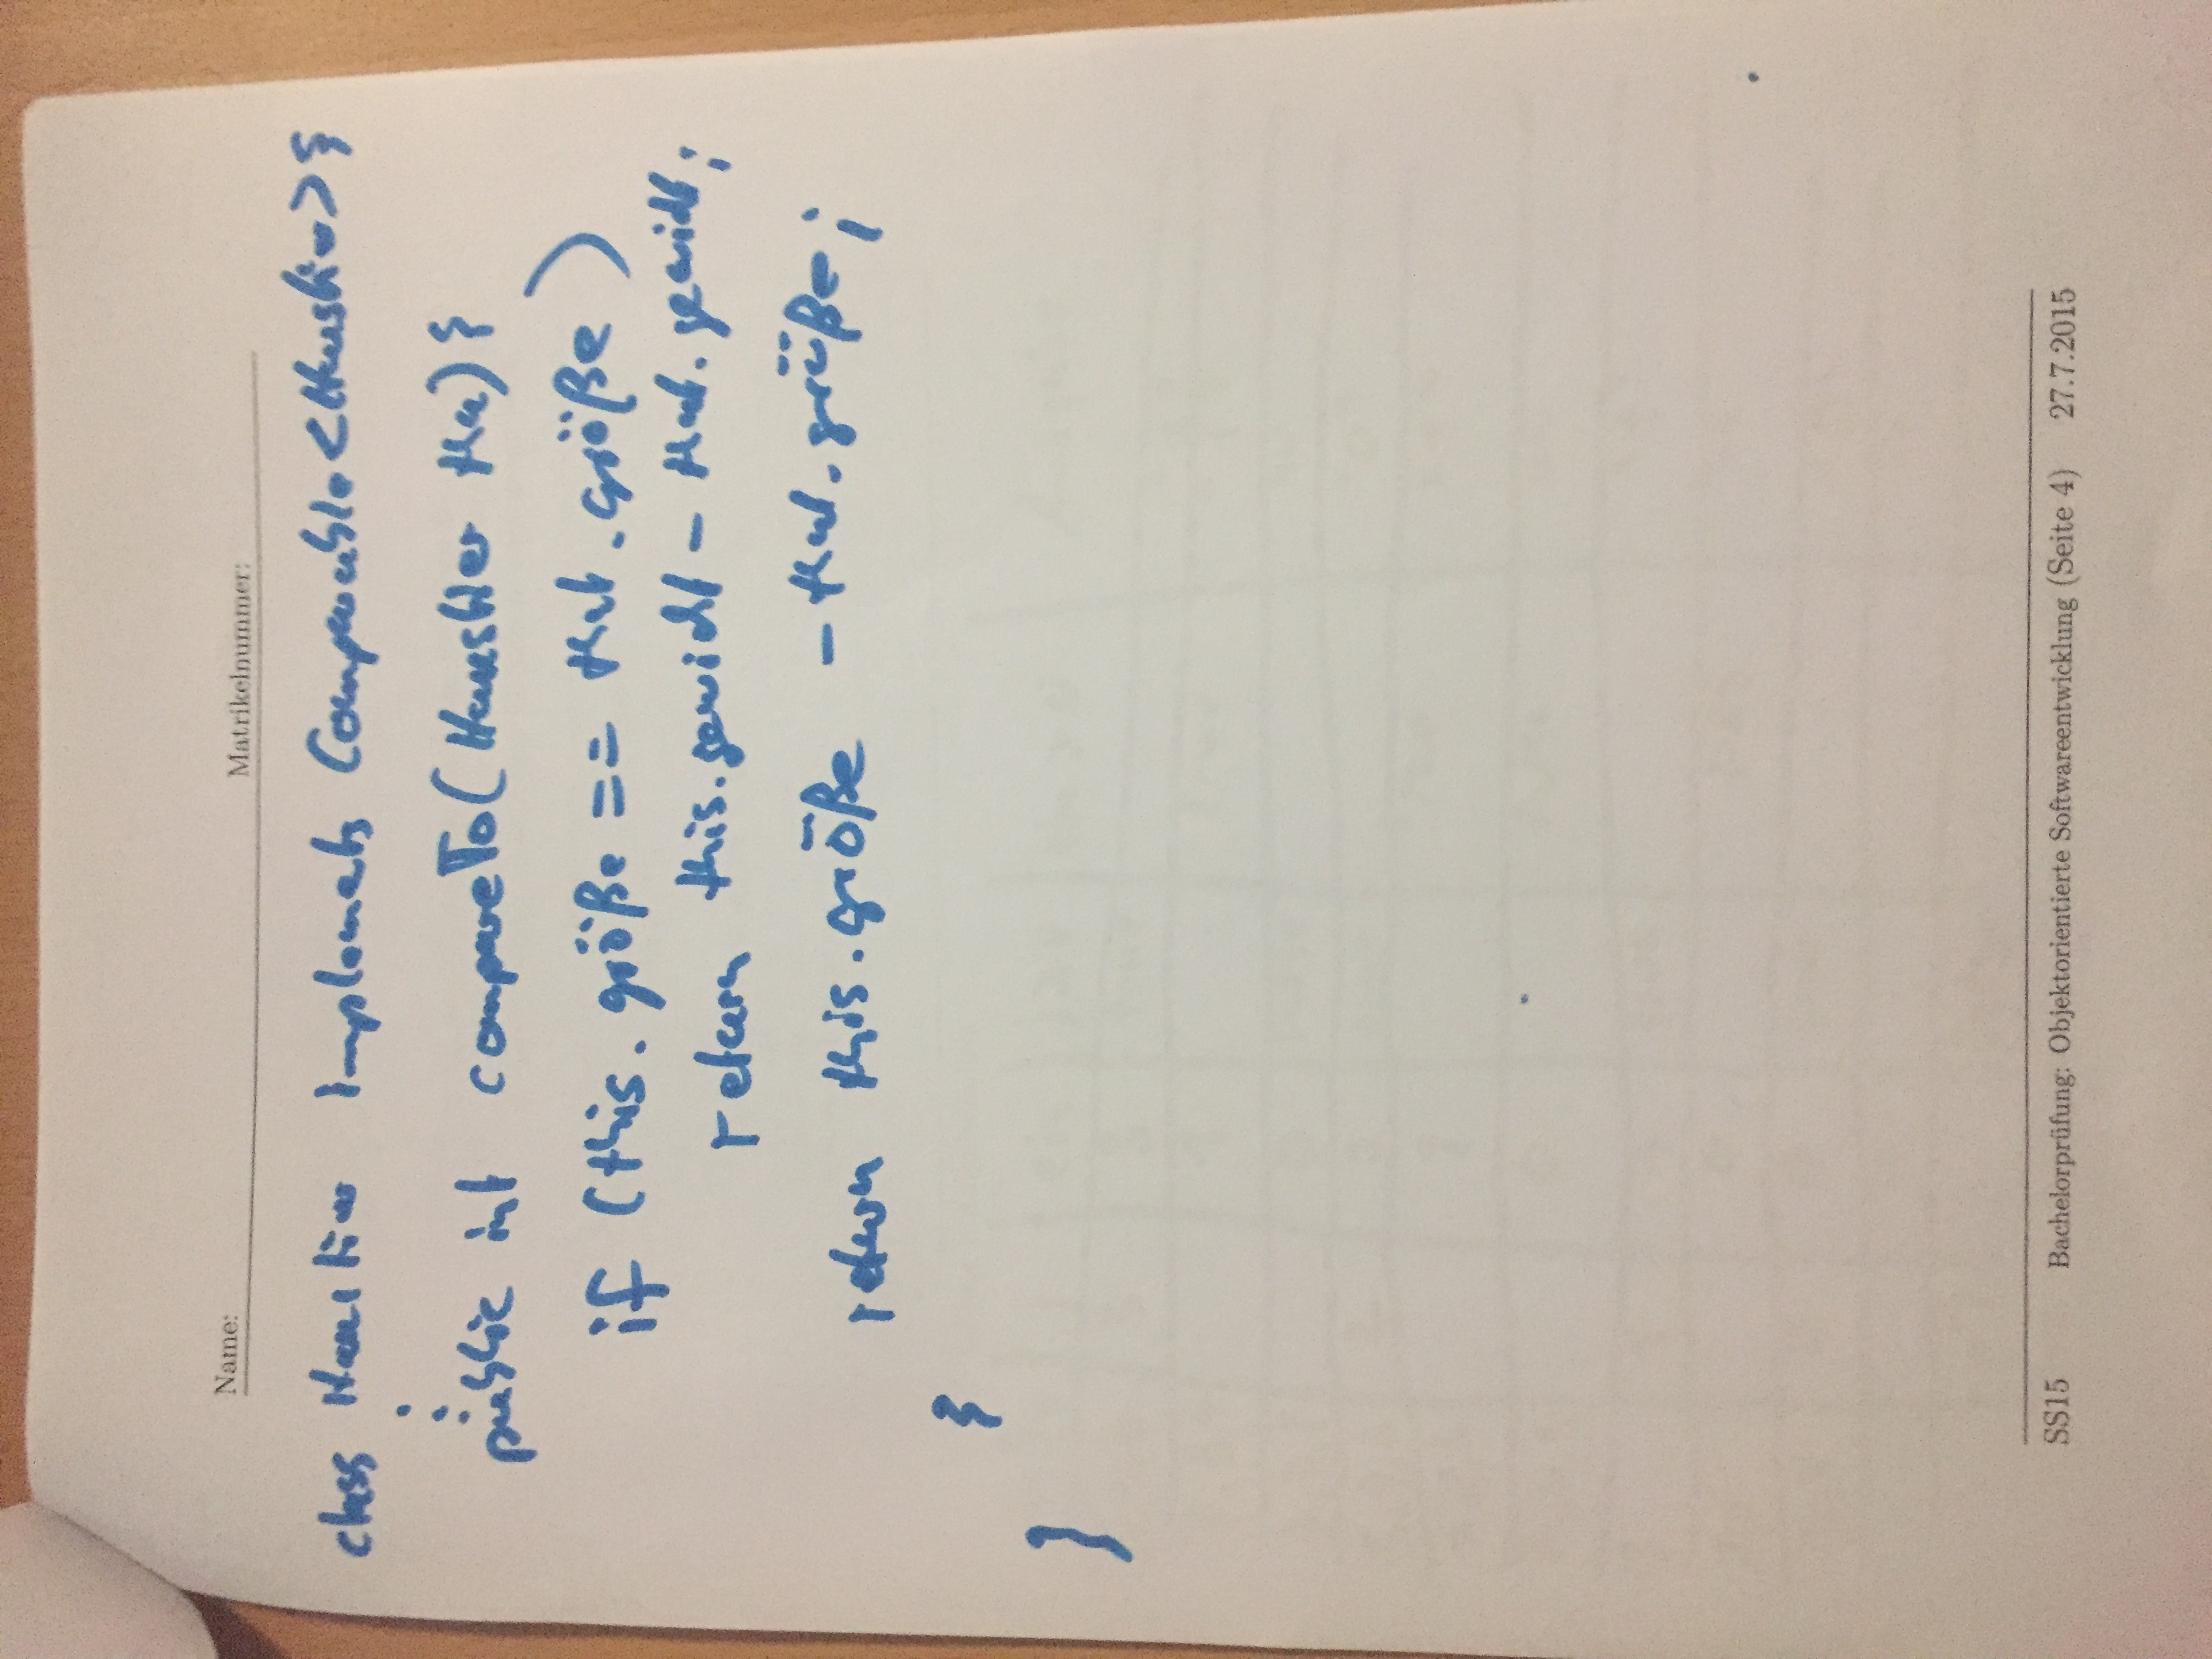 Name: Matrikelnummer:
class Haustier implements Comparable<Haustier>{
:
public int compareTo(Haustier that){
if (this.größe == that.größe)
return this.gewicht - that.gewicht;
return this.größe - that.größe;
}
}
SS15 Bachelorprüfung: Objektorientierte Softwareentwicklung (Seite 4) 27.7.2015